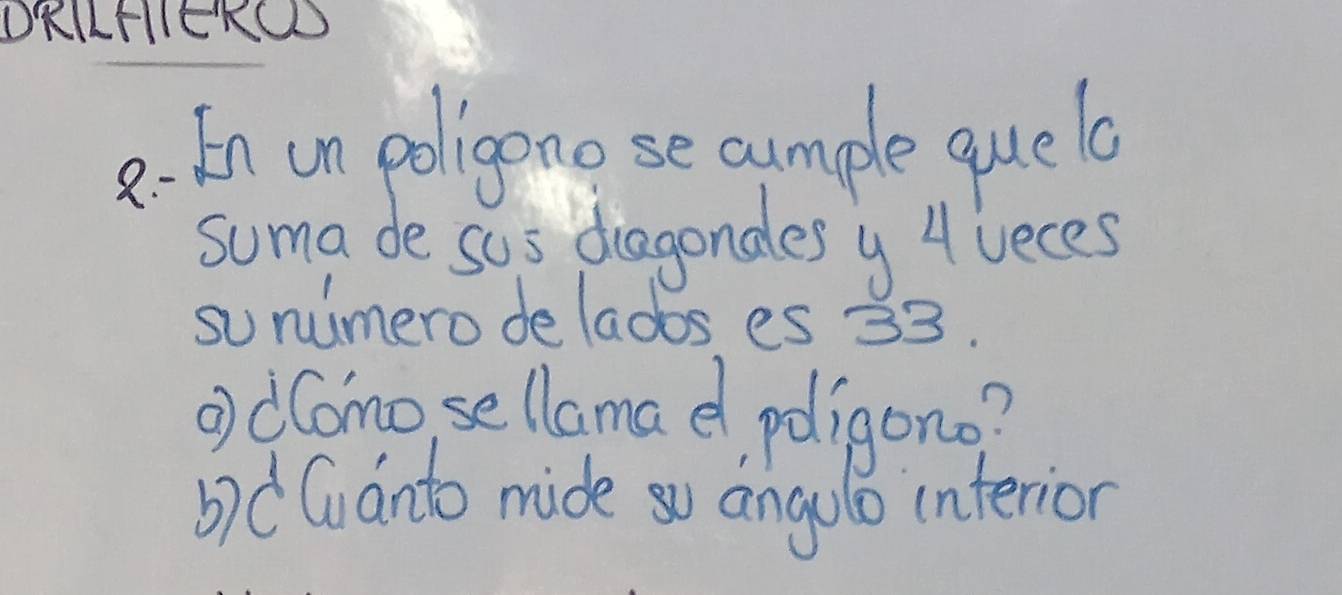 DRILATEROS
2.- En un polígono se cumple que la
suma de sus diagonales y 4 veces
su número de lados es 33.
a) ¿Cómo se llama el polígono?
b) ¿Cuánto mide su ángulo interior